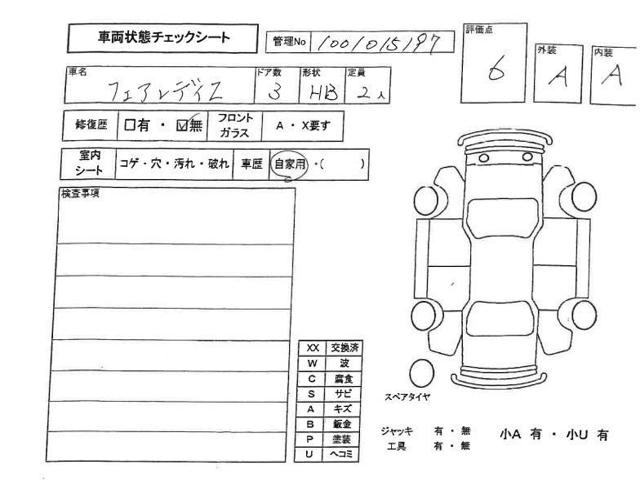 車両状態チェックシート
管理No 1001015197
評価点 6
外装 A
内装 A
車名 フェアレディZ
ドア数 3
形状 HB
定員 2人
修復歴 □有・☑無
フロントガラス A・X要す
室内シート コゲ・穴・汚れ・破れ
車歴 自家用・( )
検査事項
XX 交換済
W 波
C 腐食
S サビ
A キズ
B 鈑金
P 塗装
U ヘコミ
スペアタイヤ
ジャッキ 有・無
工具 有・無
小A 有・小U 有